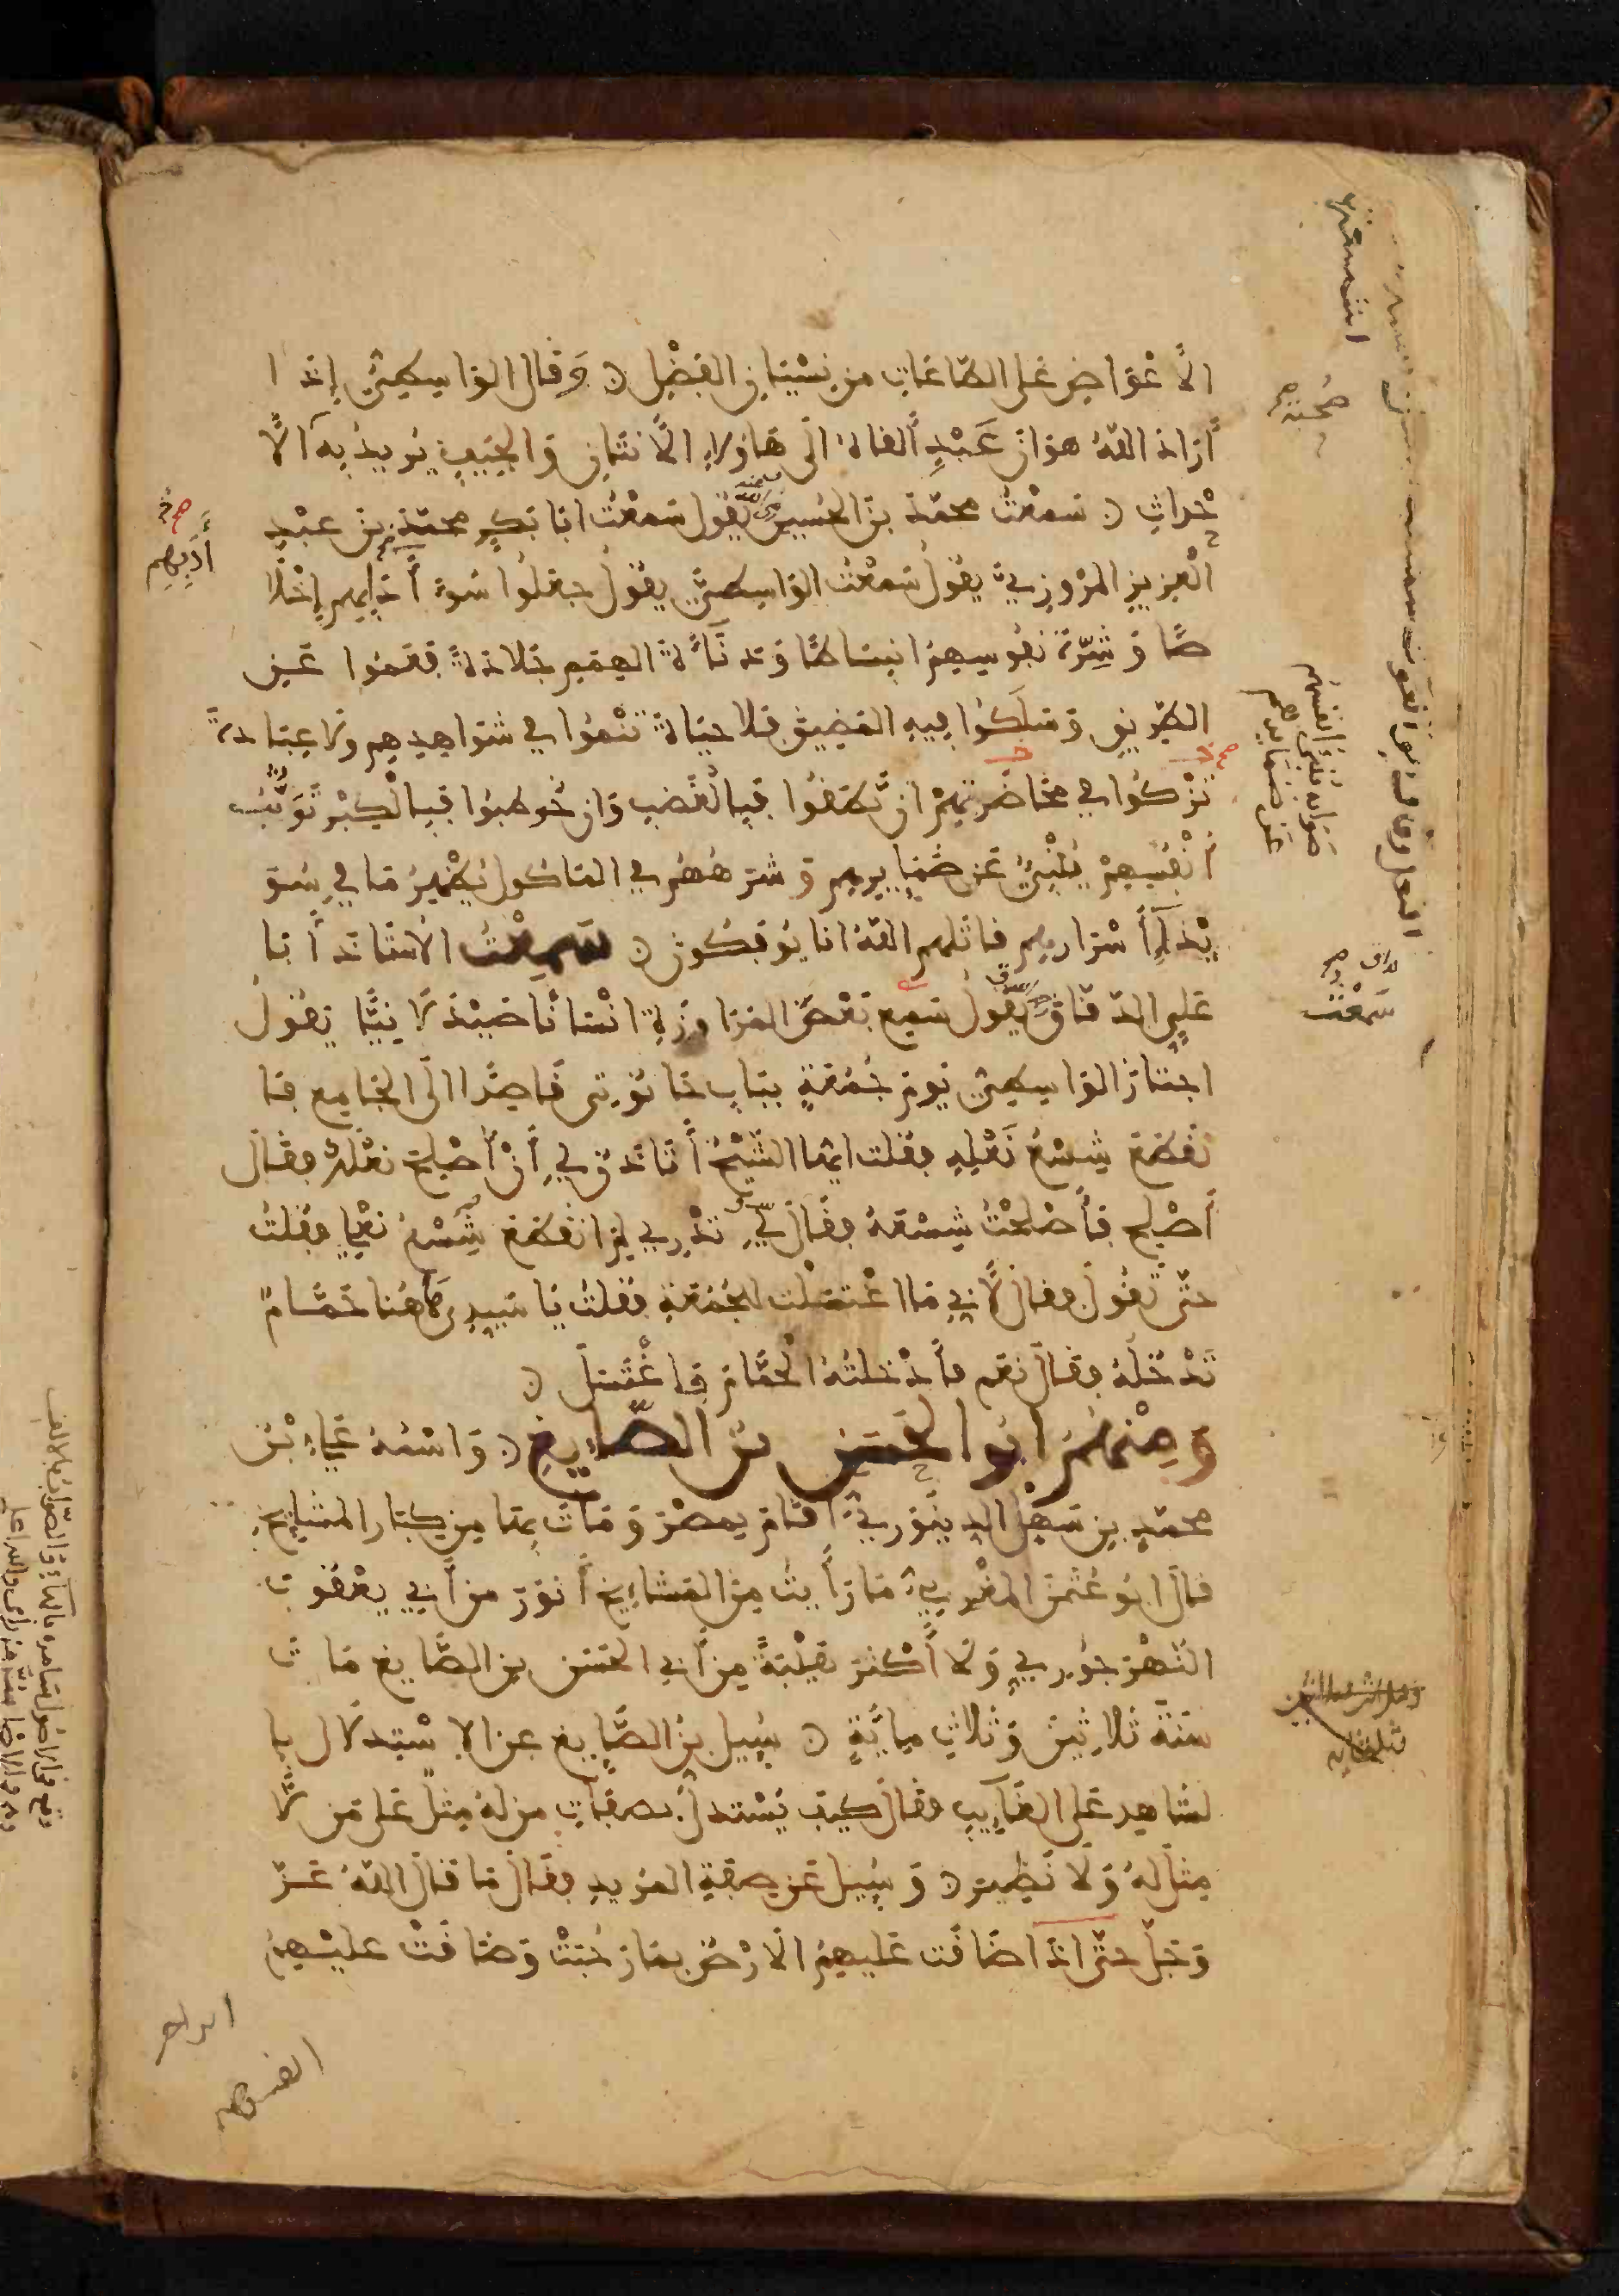 الأعواض على الطاعات من نسيان الفضل ٥ وقال الواسطي إذا
أراد الله هوان عبد ألقاه الى هاؤلاء الأنتان والجيف يريد به الأ
حداث ٥ سمعت محمد بن الحسين يقول سمعت ابا بكر محمد بن عبد
العزيز المروزي يقول سمعت الواسطي يقول جعلوا سوء أدبهم إخلا
صا وشرة نفوسهم انبساطا ودناءة الهمم جلادة فعموا عن
الطريق وسلكوا فيه المضيق فلا حياة تنموا في شواهدهم ولا عبادة
تزكوا في محاضرتهم ان نطقوا فبالغضب وان خوطبوا فبالكبر توثب
أنفسهم ينبئ عن ضمايرهم وشرههم في الماكول يظهر ما في سو
يداء أسرارهم قاتلهم الله انا يوفكون ٥ سمعت الاستاذ أبا
علي الدقاق يقول سمع بعض المراوزة انسانا صيدلانيا يقول
اجتاز الواسطي يوم جمعة بباب حانوتي قاصدا الى الجامع فا
نقطع شسع نعله فقلت ايها الشيخ أتاذن لي أن أصلح نعلك فقال
أصلح فأصلحت شسعه فقال لي تدري لم انقطع شسع نعلي فقلت
حتى تقول فقال لأني ما اغتسلت للجمعة فقلت يا سيدي هاهنا حمام
تدخله فقال نعم فأدخلته الحمام فاغتسل ٥
ومنهم ابوا الحسن بن الصايغ ٥ واسمه علي بن
محمد بن سهل الدينوري أقام بمصر ومات بها من كبار المشايخ
قال ابو عثمن المغربي ما رأيت من المشايخ أنور من أبي يعقوب
النهرجوري ولا أكثر هيبة من أبي الحسن بن الصايغ مات
سنة ثلاثين وثلاث ماية ٥ سيل بن الصايغ عن الاستدلال با
لشاهد على الغايب فقال كيف يستدل بصفات من له مثل على من لا
مثل له ولا نظير ٥ وسيل عن صفة المريد فقال ما قال الله عز
وجل حتى اذا ضاقت عليهم الارض بما رحبت وضاقت عليهم
صحبة
أدبهم
صوابه تنبئ انفسهم
عن ضمايرهم
سمعت